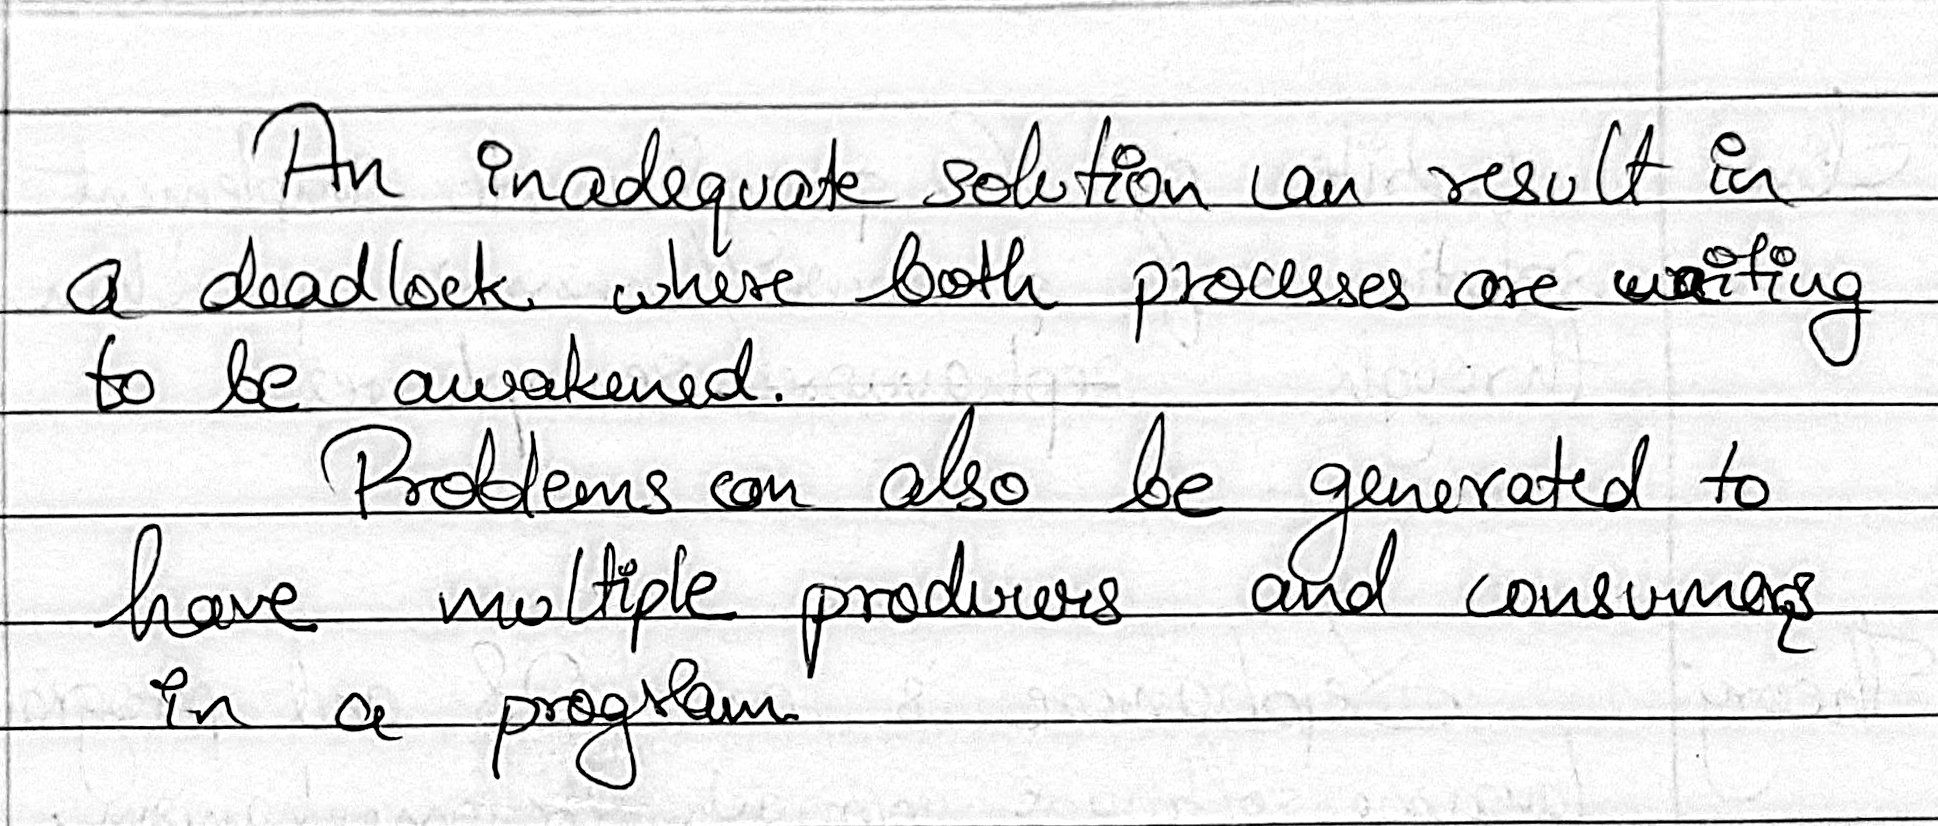 An inadequate solution can result in
a deadlock where both processes are waiting
to be awakened.
Problems can also be generated to
have multiple producers and consumers
in a program.